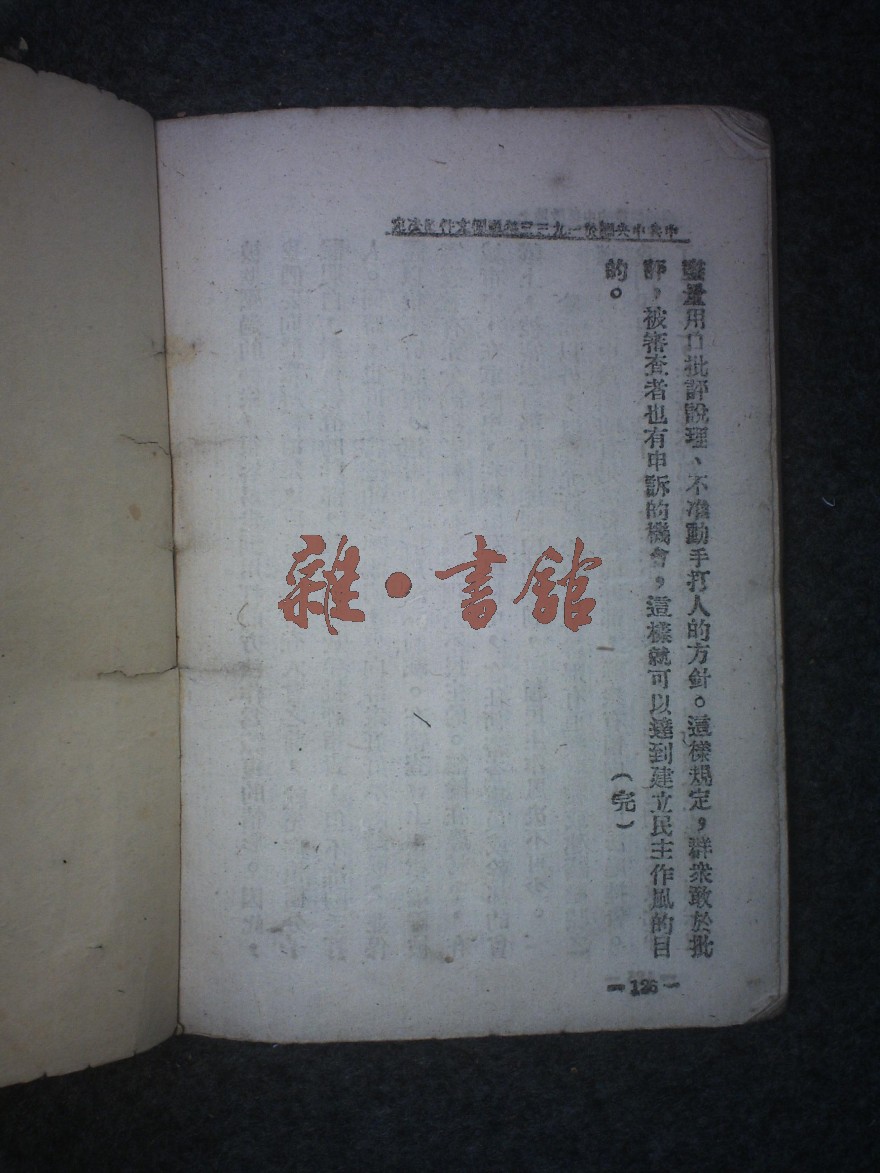 中共中央關於一九三三年兩個文件的決定
盡量用口批評說理、不准動手打人的方針。這樣規定，群衆敢於批
評，被審查者也有申訴的機會，這樣就可以達到建立民主作風的目
的。 （完）
— 126 —
雜•書館